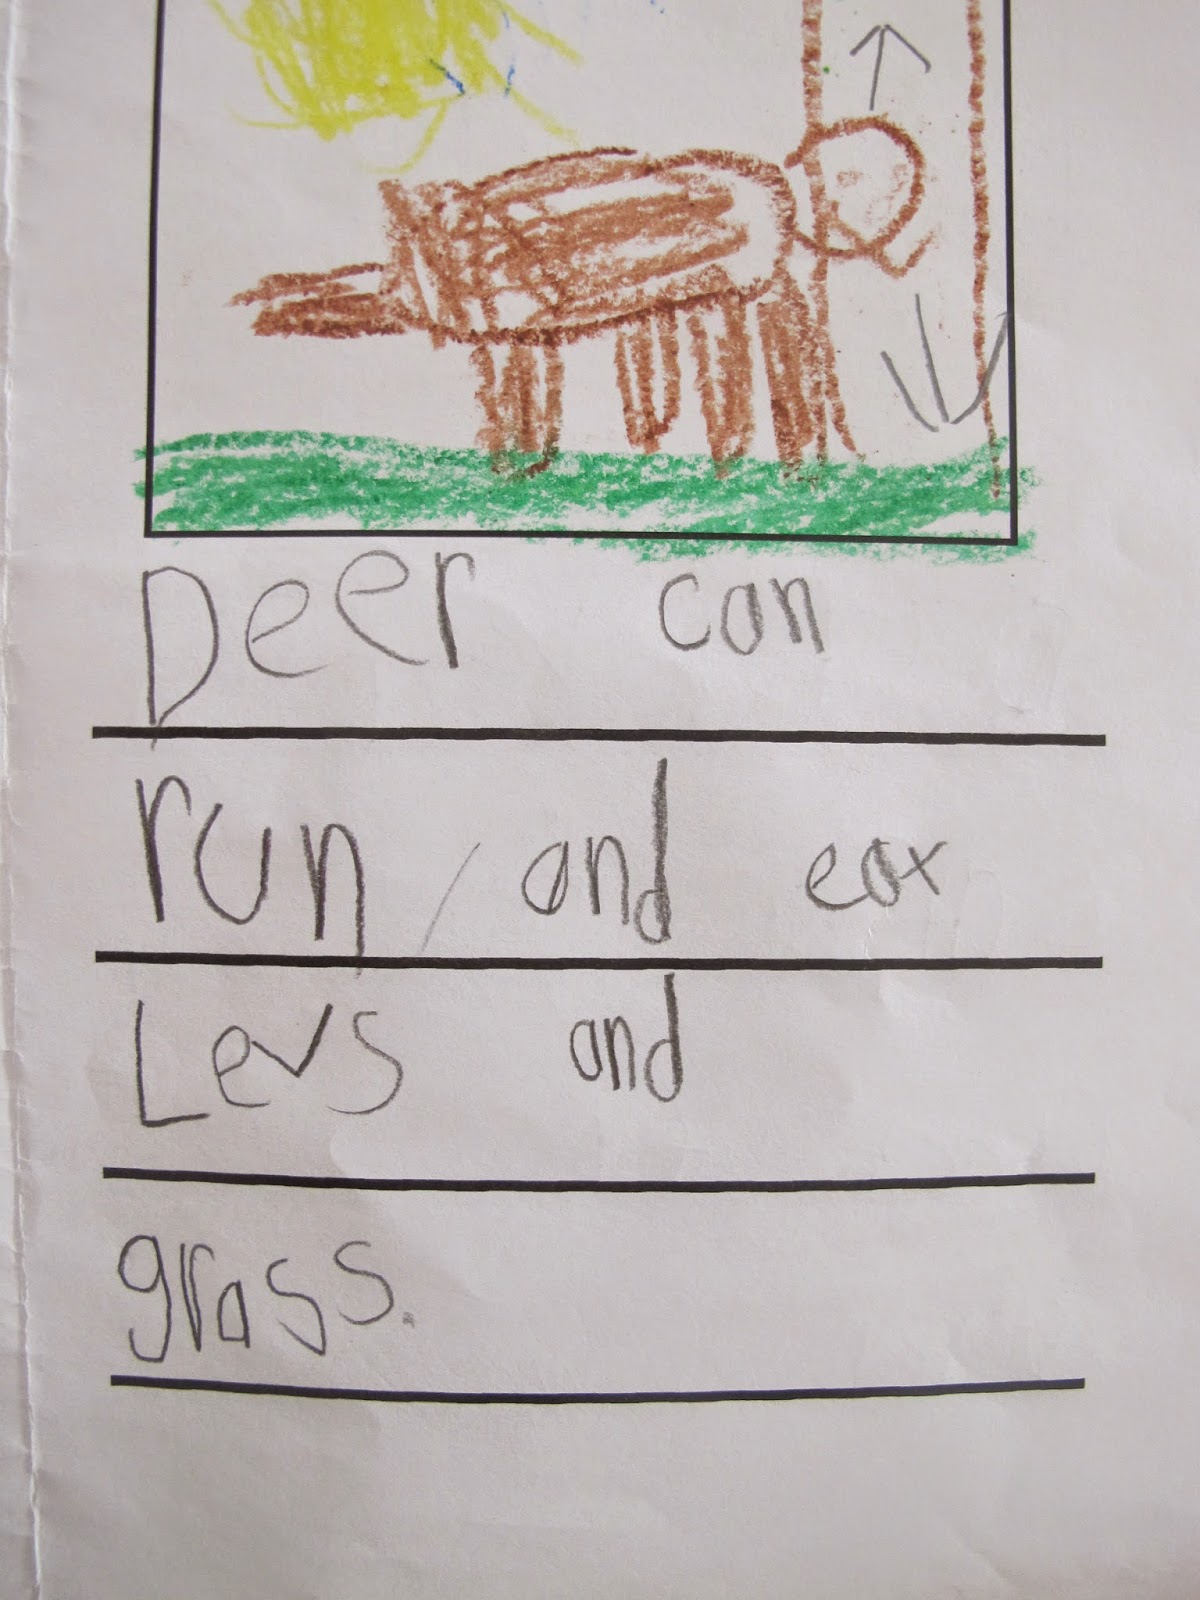 Deer can
run, and eat
Levs and
grass.